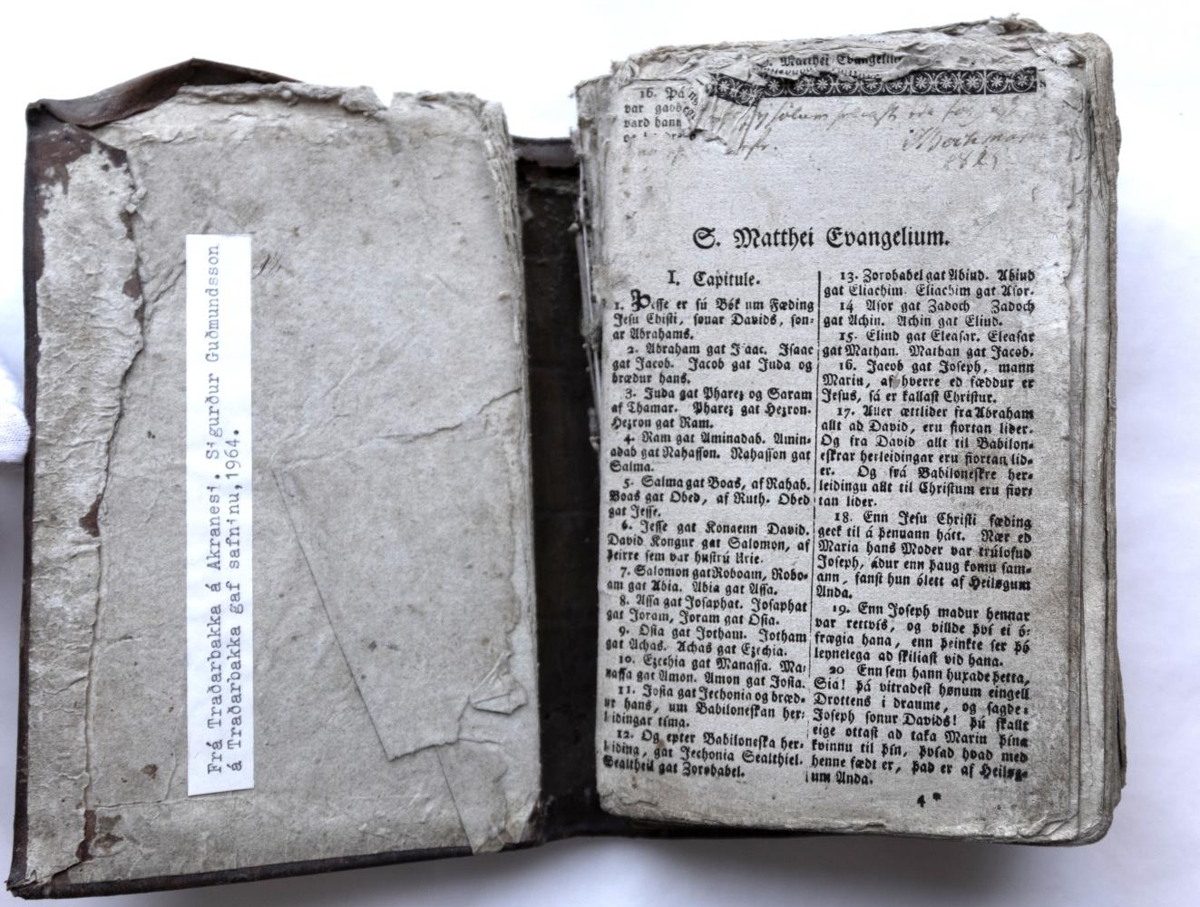 Frá Traðarbakka á Akranesi. Sigurður Guðmundsson
á Traðarbakka gaf safninu, 1964.
Matthei Evangelium
16. Þá
var
vard hann
S. Matthei Evangelium.
I. Capitule.
1. Þesse er sú Bók um Fæding
Jesu Christi, sonar Davids, son-
ar Abrahams.
2. Abraham gat Isaac. Isaac
gat Jacob. Jacob gat Juda og
brædur hans.
3. Juda gat Pharez og Saram
af Thamar. Pharez gat Hezron.
Hezron gat Ram.
4. Ram gat Aminadab. Amin-
adab gat Nahasson. Nahasson gat
Salma.
5. Salma gat Boas, af Rahab.
Boas gat Obed, af Ruth. Obed
gat Jesse.
6. Jesse gat Konaenn David.
David Kongur gat Salomon, af
þeirre sem var hustrú Urie.
7. Salomon gat Roboam, Robo-
am gat Abia. Abia gat Assa.
8. Assa gat Josaphat. Josaphat
gat Joram, Joram gat Osia.
9. Osia gat Jotham. Jotham
gat Achas. Achas gat Ezechia.
10. Ezechia gat Manassa. Ma-
nassa gat Amon. Amon gat Josia.
11. Josia gat Jechonia og bræd-
ur hans, um Babiloneskan her-
leidingar tíma.
12. Og epter Babiloneska her-
leiding, gat Jechonia Sealthiel.
Sealtheil gat Zorobabel.
13. Zorobabel gat Abiud. Abiud
gat Eliachim. Eliachim gat Asor.
14 Asor gat Zadoch Zadoch
gat Achin. Achin gat Eliud.
15. Eliud gat Eleasar. Eleasar
gat Mathan. Mathan gat Jacob.
16. Jacob gat Joseph, mann
Mariu, af hverre ed fæddur er
Jesus, sá er kallast Christur.
17. Aller ættlider fra Abraham
allt ad David, eru fiortan lider.
Og fra David allt til Babilon-
eskrar herleidingar eru fiortan lid-
er. Og frá Babiloneskre her-
leidingu allt til Christum eru fior-
tan lider.
18. Enn Jesu Christi fæding
geck til á þennann hátt. Nær ed
Maria hans Moder var trúlofud
Joseph, ádur enn þaug komu sam-
ann, fanst hun ólett af Heiløgum
Anda.
19. Enn Joseph madur hennar
var rettvís, og villde því ei ó-
frægia hana, enn þeinkte ser þó
leynelega ad skiliast vid hana.
20 Enn sem hann huxade þetta,
Siá! þá vitradest hønum eingell
Drottens i draume, og sagde:
Joseph sonur Davids! þú skallt
eige ottast ad taka Mariu þína
kvinnu til þín, þvíad hvad med
henne fædt er, þad er af Heiløg-
um Anda.
4 *